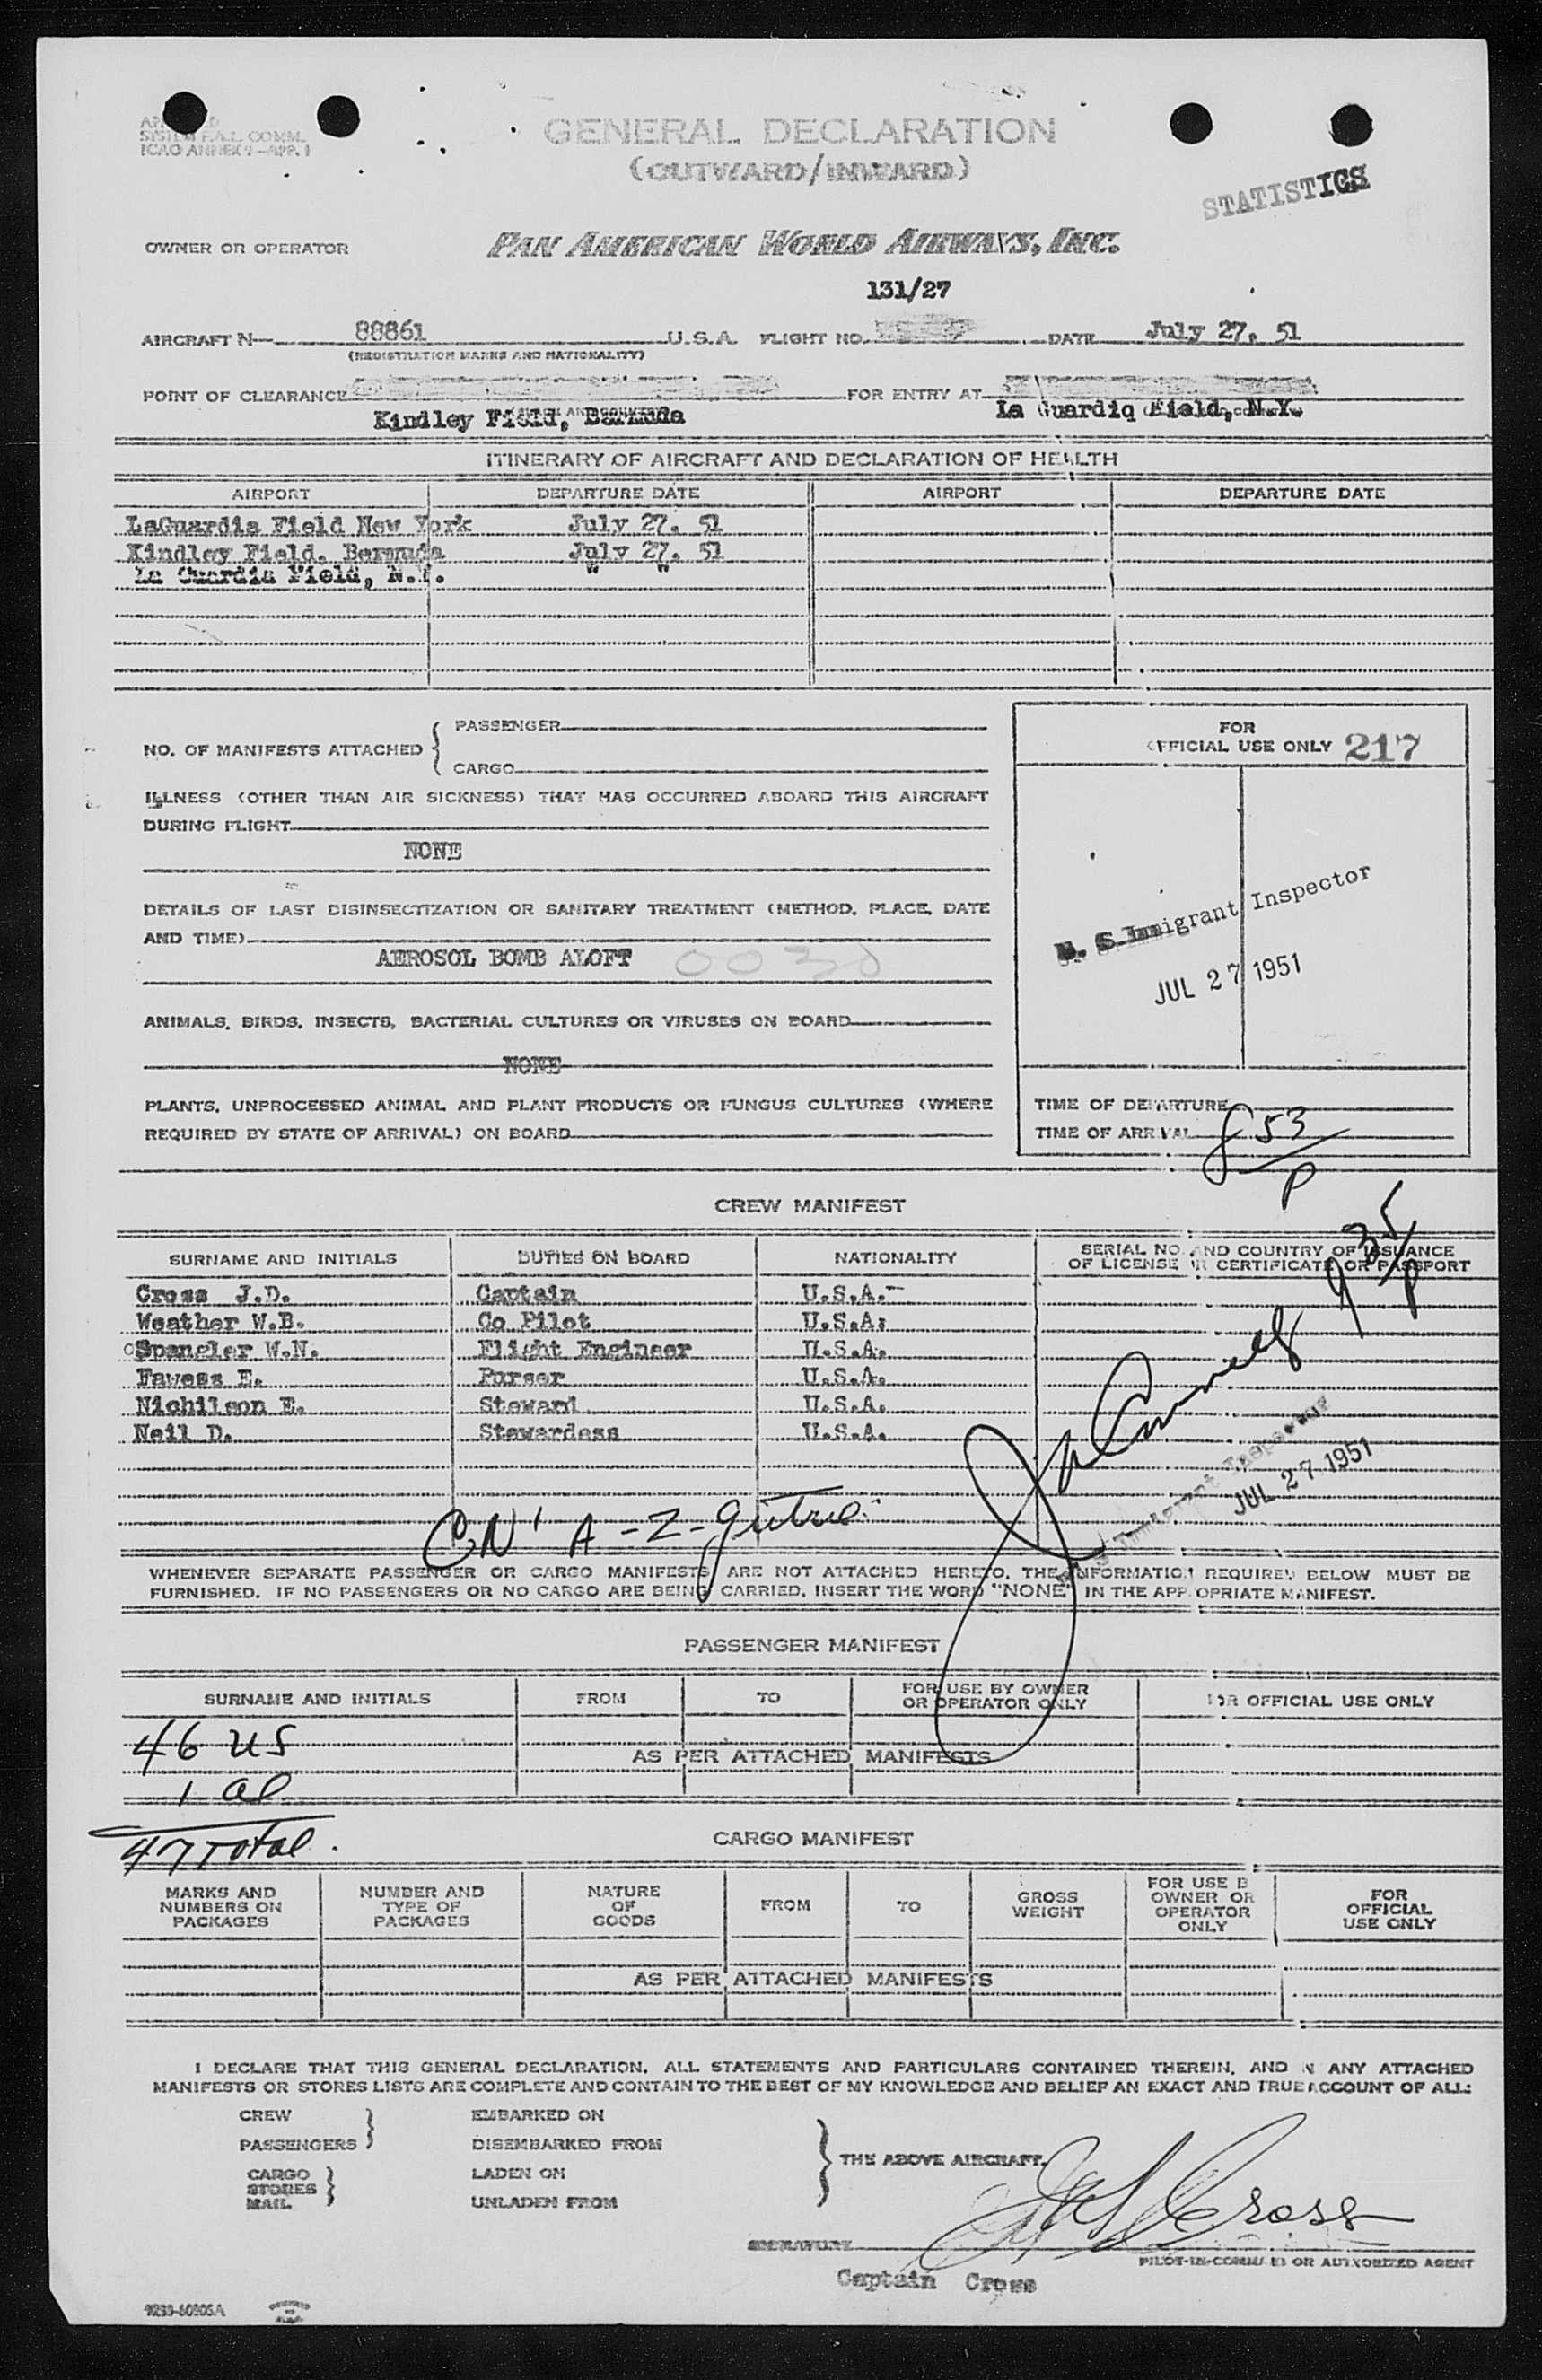 SYSTEM F.A.L. COMM.
ICAO ANNEX 9-APP. 1
GENERAL DECLARATION
(OUTWARD/INWARD)
STATISTICS
OWNER OR OPERATOR PAN AMERICAN WORLD AIRWAYS, INC.
131/27
AIRCRAFT N- 88861 U.S.A. FLIGHT NO. DATE July 27, 51
(REGISTRATION MARKS AND NATIONALITY)
POINT OF CLEARANCE FOR ENTRY AT
Kindley Field, Bermuda La Guardiq Field, N.Y.
ITINERARY OF AIRCRAFT AND DECLARATION OF HEALTH
AIRPORT DEPARTURE DATE AIRPORT DEPARTURE DATE
LaGuardia Field New York July 27, 51
Kindley Field, Bermuda July 27, 51
La Guardia Field, N.Y. " "
NO. OF MANIFESTS ATTACHED { PASSENGER
CARGO
FOR
OFFICIAL USE ONLY 217
ILLNESS (OTHER THAN AIR SICKNESS) THAT HAS OCCURRED ABOARD THIS AIRCRAFT
DURING FLIGHT
NONE
DETAILS OF LAST DISINSECTIZATION OR SANITARY TREATMENT (METHOD, PLACE, DATE
AND TIME)
AEROSOL BOMB ALOFT
U. S. Immigrant Inspector
JUL 27 1951
ANIMALS, BIRDS, INSECTS, BACTERIAL CULTURES OR VIRUSES ON BOARD
NONE
PLANTS, UNPROCESSED ANIMAL AND PLANT PRODUCTS OR FUNGUS CULTURES (WHERE
REQUIRED BY STATE OF ARRIVAL) ON BOARD
TIME OF DEPARTURE
TIME OF ARRIVAL 853
P
CREW MANIFEST
935
P
SURNAME AND INITIALS DUTIES ON BOARD NATIONALITY SERIAL NO. AND COUNTRY OF ISSUANCE
OF LICENSE OR CERTIFICATE OR PASSPORT
Cross J.D. Captain U.S.A.
Weather W.B. Co Pilot U.S.A.
Spangler W.N. Flight Engineer U.S.A.
Fawess E. Purser U.S.A.
Nichilson E. Steward U.S.A.
Neil D. Stewardess U.S.A.
Immigrant Inspector
JUL 27 1951
WHENEVER SEPARATE PASSENGER OR CARGO MANIFESTS ARE NOT ATTACHED HERETO, THE INFORMATION REQUIRED BELOW MUST BE
FURNISHED. IF NO PASSENGERS OR NO CARGO ARE BEING CARRIED, INSERT THE WORD "NONE" IN THE APPROPRIATE MANIFEST.
PASSENGER MANIFEST
SURNAME AND INITIALS FROM TO FOR USE BY OWNER
OR OPERATOR ONLY FOR OFFICIAL USE ONLY
46 US
AS PER ATTACHED MANIFESTS
1 al
47 Total
CARGO MANIFEST
MARKS AND
NUMBERS ON
PACKAGES
NUMBER AND
TYPE OF
PACKAGES
NATURE
OF
GOODS
FROM
TO
GROSS
WEIGHT
FOR USE B
OWNER OR
OPERATOR
ONLY
FOR
OFFICIAL
USE ONLY
AS PER ATTACHED MANIFESTS
I DECLARE THAT THIS GENERAL DECLARATION, ALL STATEMENTS AND PARTICULARS CONTAINED THEREIN, AND IN ANY ATTACHED
MANIFESTS OR STORES LISTS ARE COMPLETE AND CONTAIN TO THE BEST OF MY KNOWLEDGE AND BELIEF AN EXACT AND TRUE ACCOUNT OF ALL:
CREW EMBARKED ON
PASSENGERS DISEMBARKED FROM
THE ABOVE AIRCRAFT.
CARGO LADEN ON
STORES
MAIL UNLADEN FROM
Cross
SIGNATURE
PILOT-IN-COMMAND OR AUTHORIZED AGENT
Captain Cross